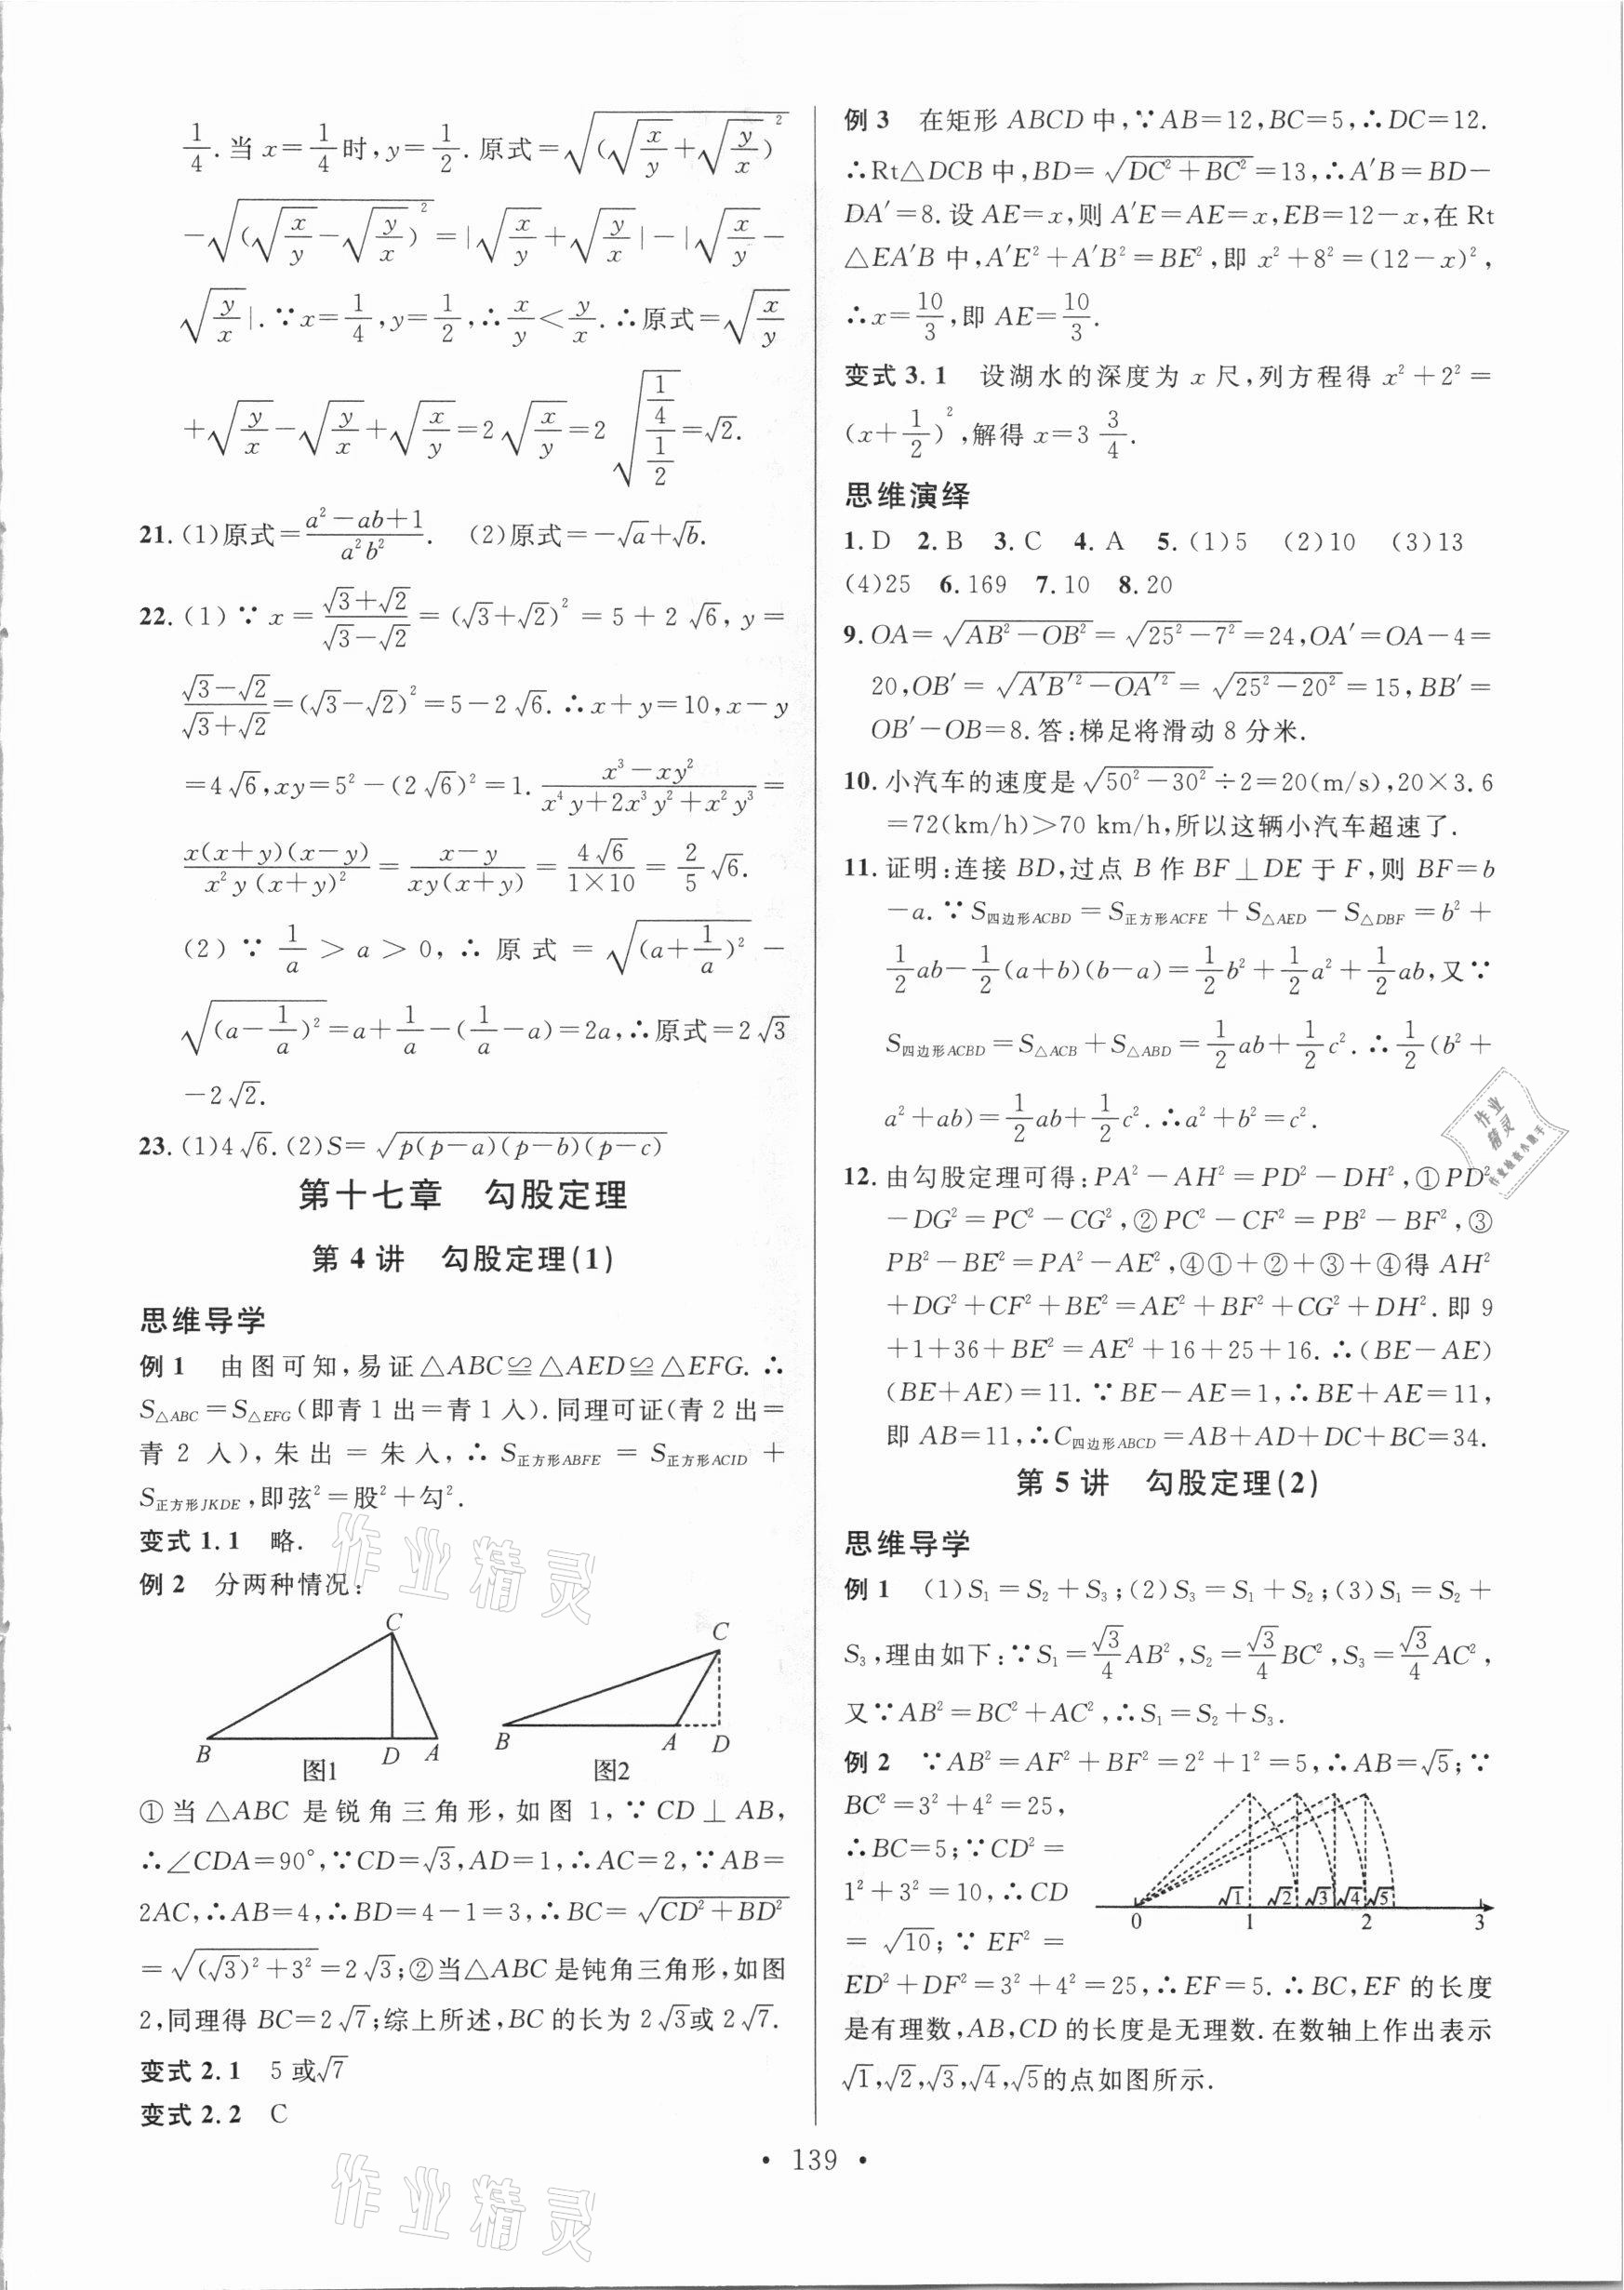 1/4.当 x=1/4时,y=1/2.原式=√((√(x/y)+√(y/x))²)
-√((√(x/y)-√(y/x))²)=|√(x/y)+√(y/x)|-|√(x/y)-
√(y/x)|.∵x=1/4,y=1/2,∴x/y<y/x.∴原式=√(x/y)
+√(y/x)-√(y/x)+√(x/y)=2√(x/y)=2√((1/4)/(1/2))=√2.
21.(1)原式=(a²-ab+1)/(a²b²). (2)原式=-√a+√b.
22.(1)∵x=(√3+√2)/(√3-√2)=(√3+√2)²=5+2√6,y=
(√3-√2)/(√3+√2)=(√3-√2)²=5-2√6.∴x+y=10,x-y
=4√6,xy=5²-(2√6)²=1.(x³-xy²)/(x⁴y+2x³y²+x²y³)=
x(x+y)(x-y)/(x²y(x+y)²)=(x-y)/(xy(x+y))=4√6/(1×10)=2/5√6.
(2)∵1/a>a>0,∴原式=√((a+1/a)²)-
√((a-1/a)²)=a+1/a-(1/a-a)=2a,∴原式=2√3
-2√2.
23.(1)4√6.(2)S=√(p(p-a)(p-b)(p-c))
第十七章 勾股定理
第4讲 勾股定理(1)
思维导学
例1 由图可知,易证△ABC≌△AED≌△EFG.∴
S△ABC=S△EFG(即青1出=青1入).同理可证(青2出=
青2入),朱出=朱入,∴S正方形ABFE=S正方形ACID+
S正方形JKDE,即弦²=股²+勾².
变式1.1 略.
例2 分两种情况:
C
B
D
A
图1
C
B
A
D
图2
①当△ABC是锐角三角形,如图1,∵CD⊥AB,
∴∠CDA=90°,∵CD=√3,AD=1,∴AC=2,∵AB=
2AC,∴AB=4,∴BD=4-1=3,∴BC=√(CD²+BD²)
=√((√3)²+3²)=2√3;②当△ABC是钝角三角形,如图
2,同理得BC=2√7;综上所述,BC的长为2√3或2√7.
变式2.1 5或√7
变式2.2 C
例3 在矩形ABCD中,∵AB=12,BC=5,∴DC=12.
∴Rt△DCB中,BD=√(DC²+BC²)=13,∴A′B=BD-
DA′=8.设AE=x,则A′E=AE=x,EB=12-x,在Rt
△EA′B中,A′E²+A′B²=BE²,即x²+8²=(12-x)²,
∴x=10/3,即AE=10/3.
变式3.1 设湖水的深度为x尺,列方程得x²+2²=
(x+1/2)²,解得x=3 3/4.
思维演绎
1.D 2.B 3.C 4.A 5.(1)5 (2)10 (3)13
(4)25 6.169 7.10 8.20
9.OA=√(AB²-OB²)=√(25²-7²)=24,OA′=OA-4=
20,OB′=√(A′B′²-OA′²)=√(25²-20²)=15,BB′=
OB′-OB=8.答:梯足将滑动8分米.
10.小汽车的速度是√(50²-30²)÷2=20(m/s),20×3.6
=72(km/h)>70 km/h,所以这辆小汽车超速了.
11.证明:连接BD,过点B作BF⊥DE于F,则BF=b
-a.∵S四边形ACBD=S正方形ACFE+S△AED-S△DBF=b²+
1/2ab-1/2(a+b)(b-a)=1/2b²+1/2a²+1/2ab,又∵
S四边形ACBD=S△ACB+S△ABD=1/2ab+1/2c².∴1/2(b²+
a²+ab)=1/2ab+1/2c².∴a²+b²=c².
12.由勾股定理可得:PA²-AH²=PD²-DH²,①PD²
-DG²=PC²-CG²,②PC²-CF²=PB²-BF²,③
PB²-BE²=PA²-AE²,④①+②+③+④得AH²
+DG²+CF²+BE²=AE²+BF²+CG²+DH².即9
+1+36+BE²=AE²+16+25+16.∴(BE-AE)
(BE+AE)=11.∵BE-AE=1,∴BE+AE=11,
即AB=11,∴C四边形ABCD=AB+AD+DC+BC=34.
第5讲 勾股定理(2)
思维导学
例1 (1)S₁=S₂+S₃;(2)S₃=S₁+S₂;(3)S₁=S₂+
S₃,理由如下:∵S₁=√3/4AB²,S₂=√3/4BC²,S₃=√3/4AC²,
又∵AB²=BC²+AC²,∴S₁=S₂+S₃.
例2 ∵AB²=AF²+BF²=2²+1²=5,∴AB=√5;∵
BC²=3²+4²=25,
∴BC=5;∵CD²=
1²+3²=10,∴CD
=√10;∵EF²=
√1 √2 √3 √4 √5
0 1 2 3
ED²+DF²=3²+4²=25,∴EF=5.∴BC,EF的长度
是有理数,AB,CD的长度是无理数.在数轴上作出表示
√1,√2,√3,√4,√5的点如图所示.
• 139 •
作业精灵
作业精灵
作业
精灵